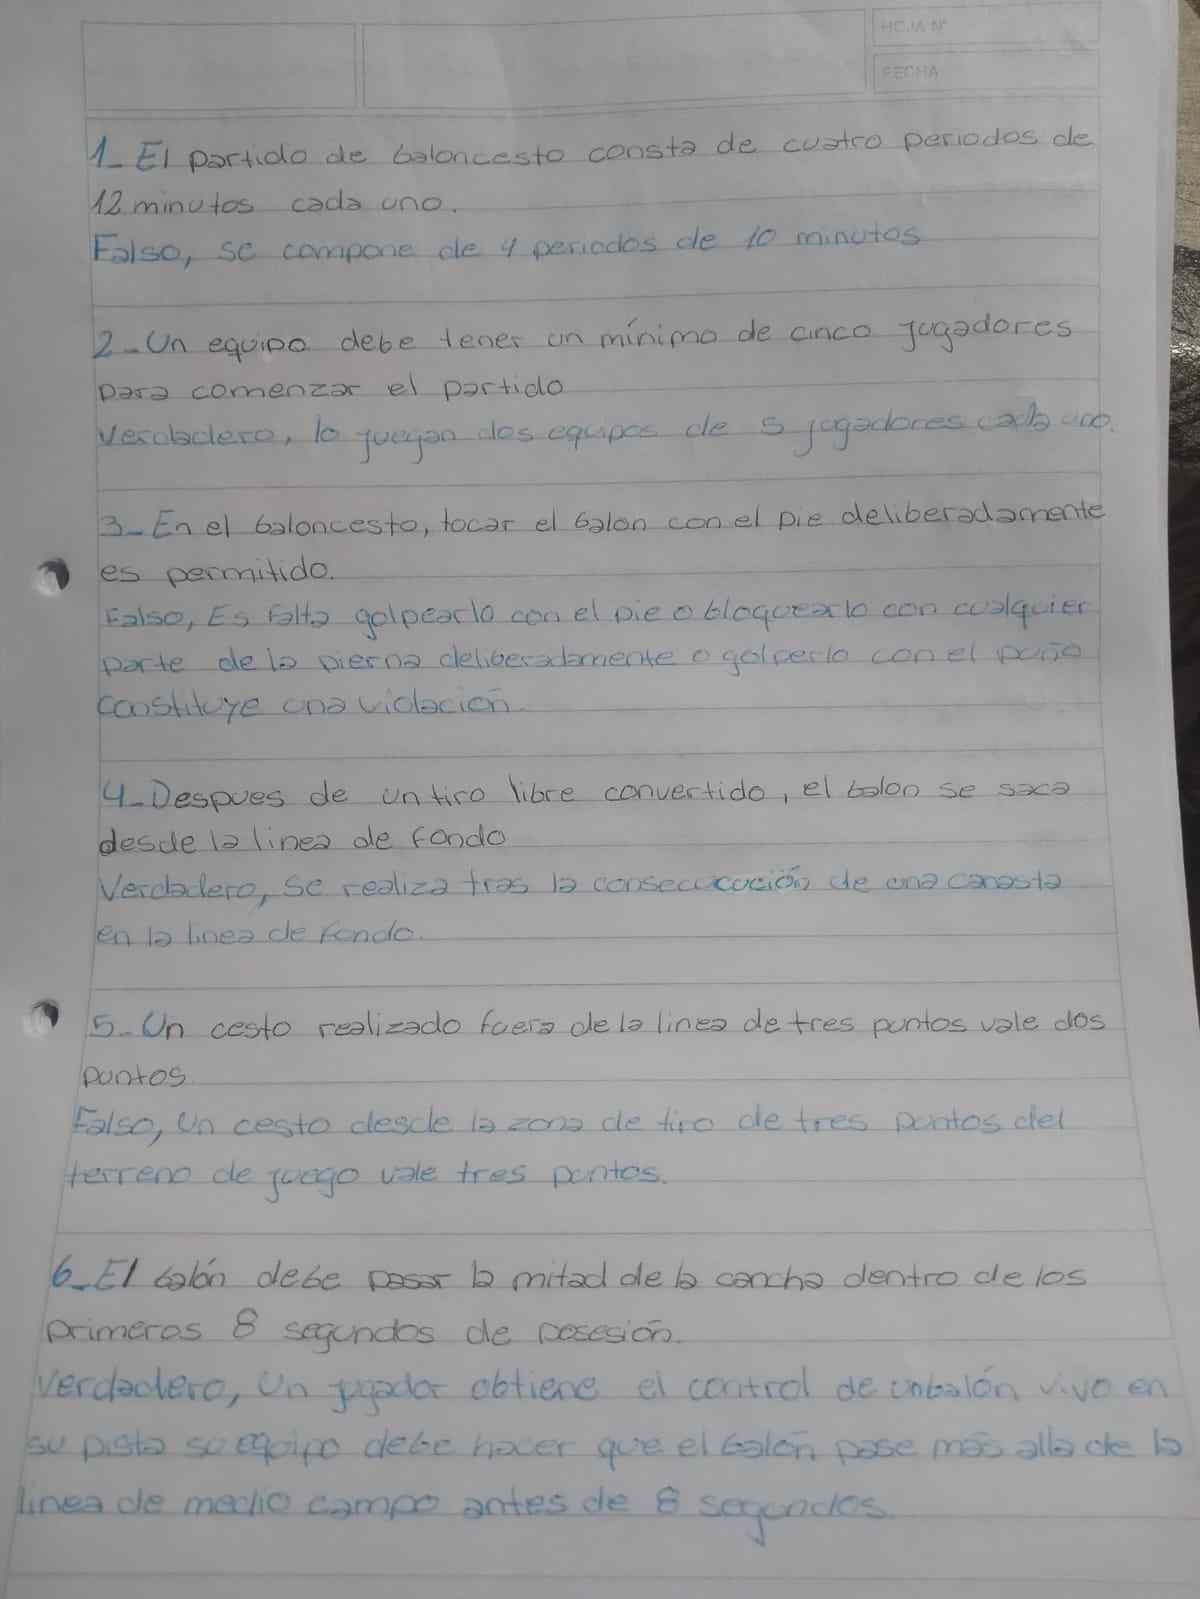 HOJA N°
FECHA
1_ El partido de baloncesto consta de cuatro periodos de
12 minutos cada uno.
Falso, se compone de 4 periodos de 10 minutos
2_ Un equipo debe tener un mínimo de cinco jugadores
para comenzar el partido
Verdadero, lo juegan dos equipos de 5 jugadores cada uno.
3_ En el baloncesto, tocar el balon con el pie deliberadamente
es permitido.
Falso, Es falta golpearlo con el pie o bloquearlo con cualquier
parte de la pierna deliberadamente o golperlo con el puño
constituye una violación.
4_ Despues de un tiro libre convertido, el balon se saca
desde la linea de fondo
Verdadero, se realiza tras la consecucución de una canasta
en la linea de fondo.
5_ Un cesto realizado fuera de la linea de tres puntos vale dos
puntos.
Falso, Un cesto desde la zona de tiro de tres puntos del
terreno de juego vale tres puntos.
6_ El balón debe pasar la mitad de la cancha dentro de los
primeros 8 segundos de posesión.
Verdadero, Un jugador obtiene el control de un balón vivo en
su pista su equipo debe hacer que el balón pase más alla de la
linea de medio campo antes de 8 segundos.